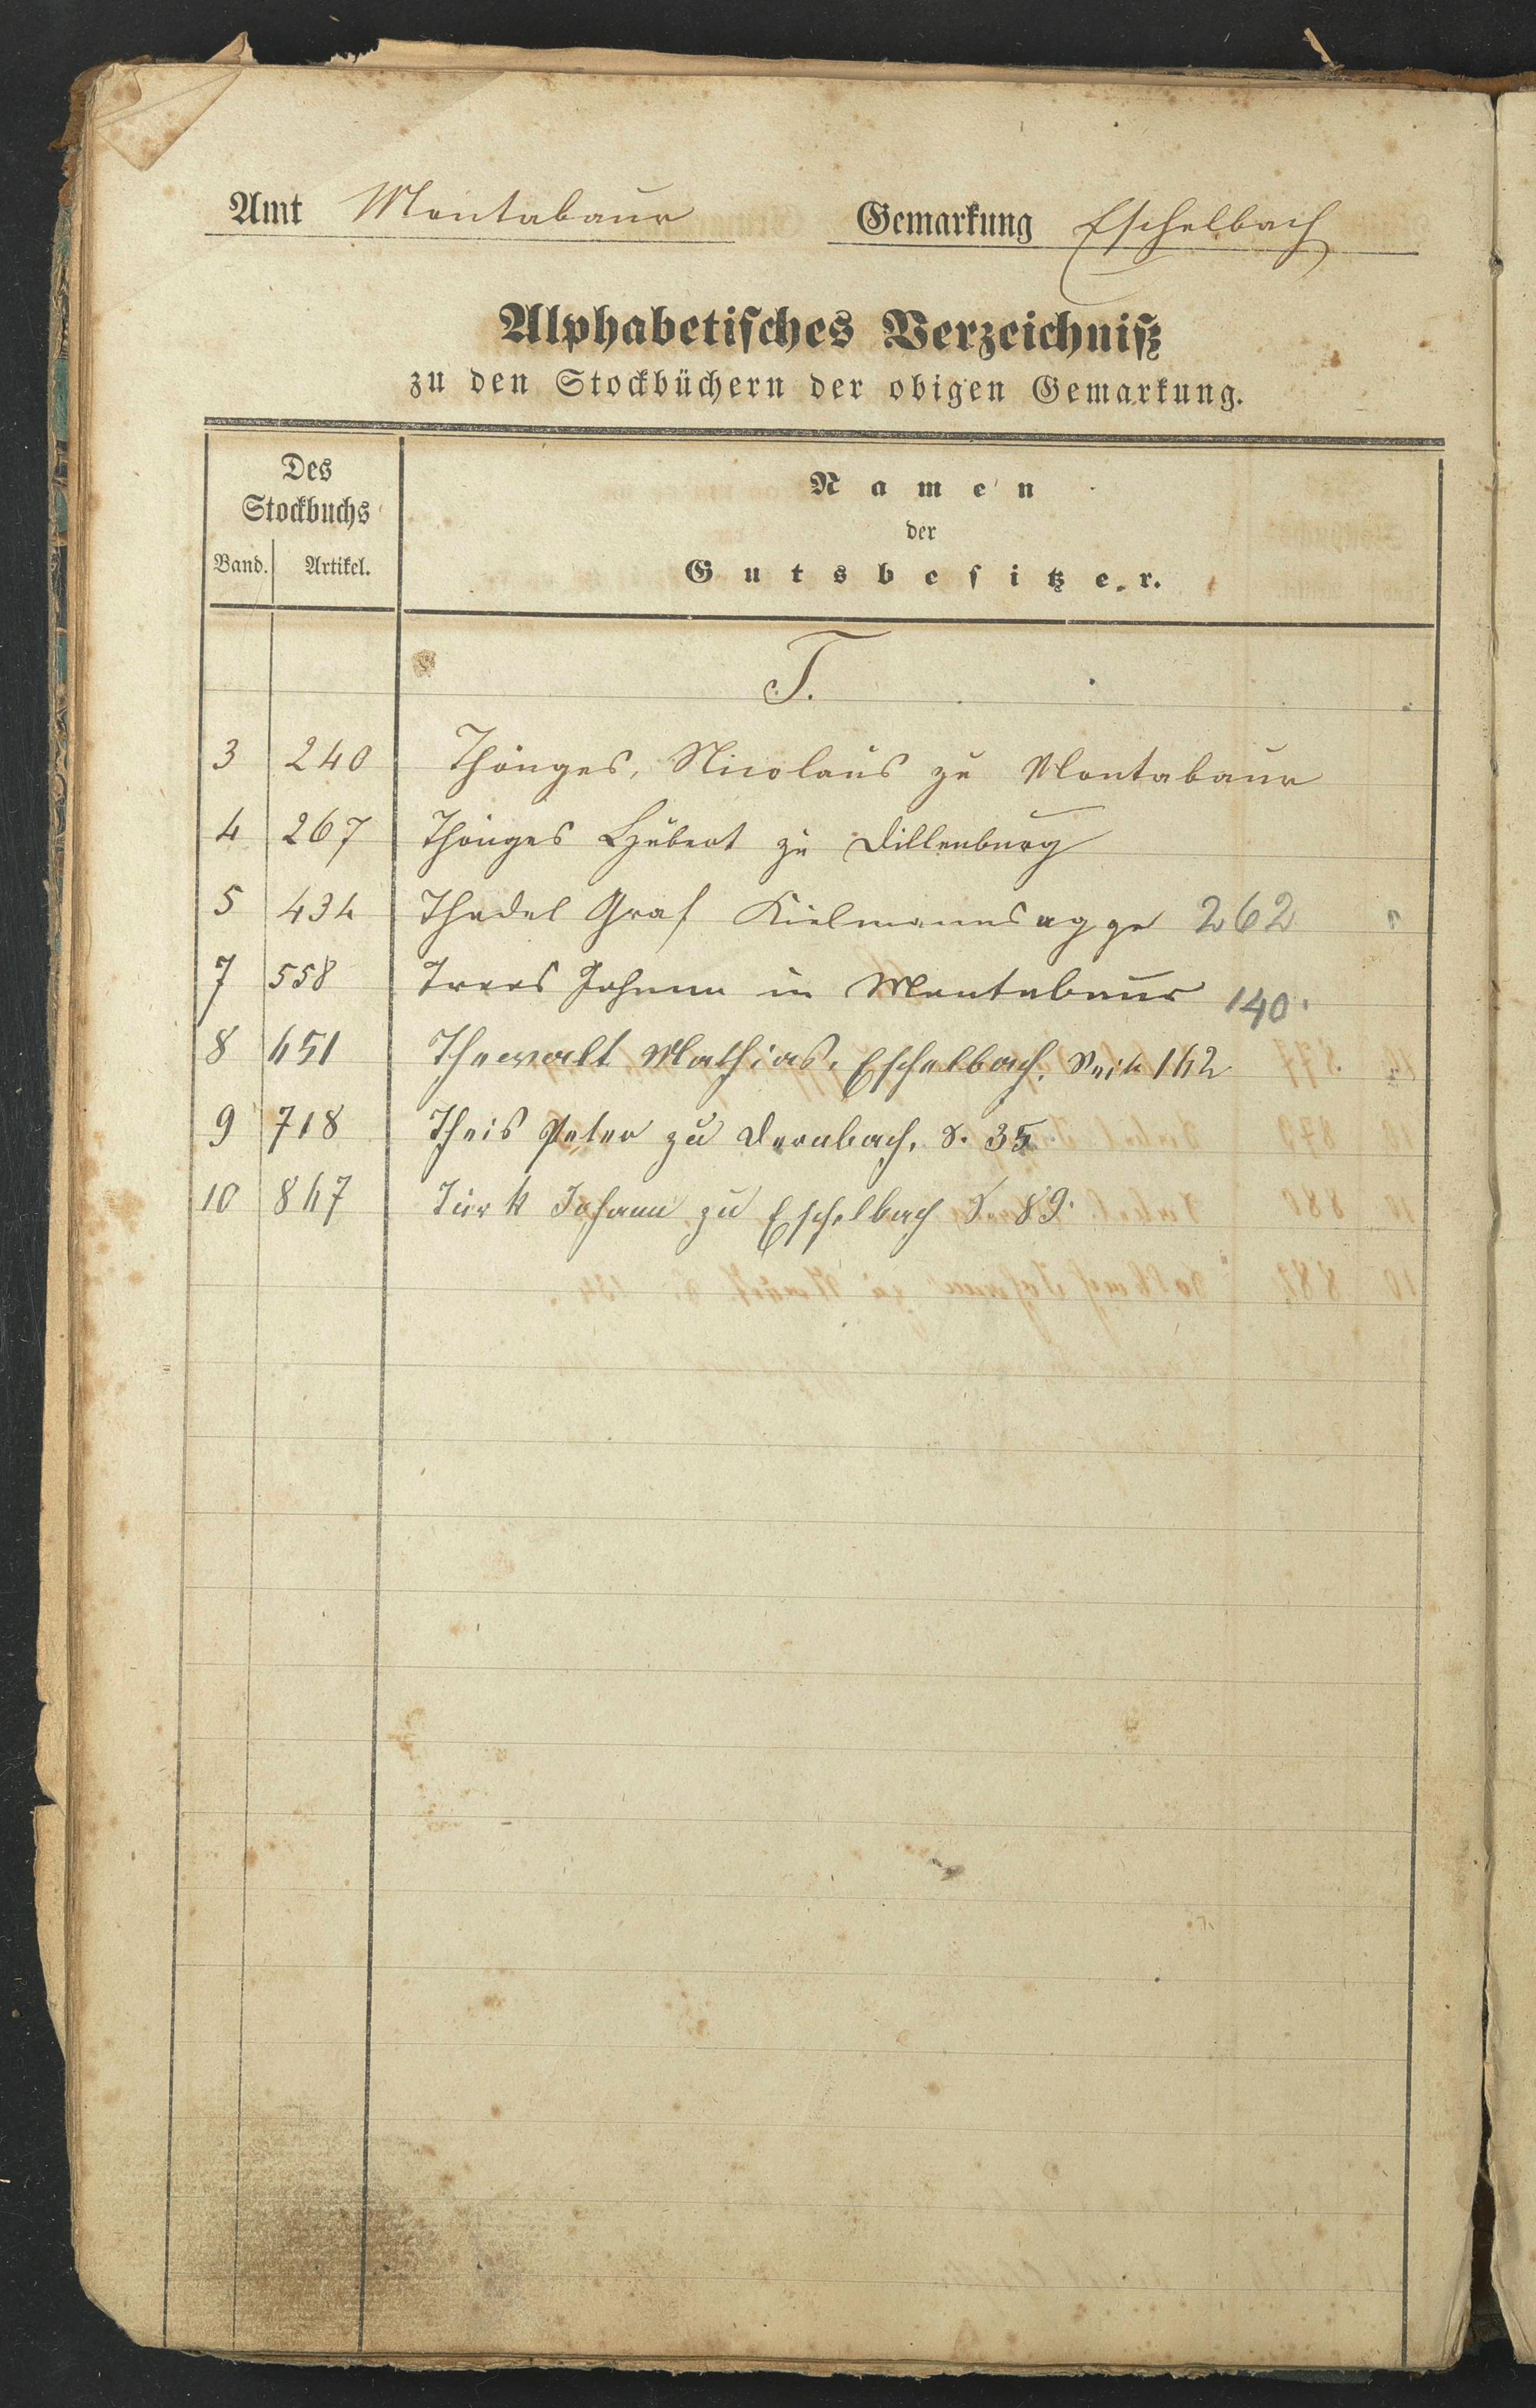 Amt Montabaur Gemarkung Eschelbach
Alphabetisches Verzeichniß
zu den Stockbüchern der obigen Gemarkung.
Des
Stockbuchs
Band. Artikel.
Namen
der
Gutsbesitzer.
T.
3 240 Thönges, Nicolaus zu Montabaur
4 267 Thönges Hubert zu Dillenburg
5 434 Thadel Graf Kielmannsegge 262
7 558 Johann in Montabaur 140.
8 651 Thewalt Mathias, Eschelbach. Seite 162
9 718 Theis Peter zu Dernbach. S. 35
10 867 Türk Johann zu Eschelbach S. 89.